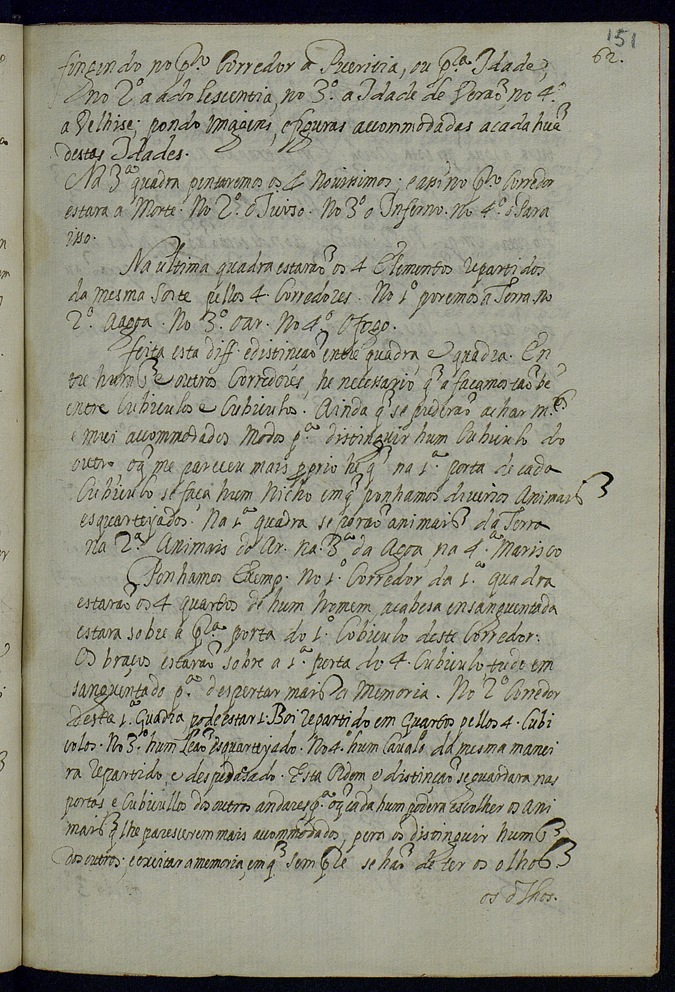 151
62.
fingindo no pro Corredor a Puericia, ou pra Idade,
no 2º a adolescentia, no 3º a Idade de Verão no 4º
a Velhise; pondo Imagens, e figuras accommodadas a cada hũa
destas Idades.
Na 3ª quadra pintaremos os 4 Novissimos; e assi no pro Corredor
estara a Morte. No 2º o Juiso. No 3º o Inferno. no 4º o Para
iso.
Na ultima quadra estarão os 4 Elementos repartidos
da mesma Sorte pellos 4 Corredores. No 1º poremos a Terra. no
2º Agoa. No 3º o ar. No 4º o fogo.
feita esta diff. e distincão entre quadra e quadra. En
tre huns e outros Corredores, he necessario q a façamos tãobẽ
entre Cubiculos e Cubiculos. Ainda q se puderão achar mtos
e mui accommodados modos pª distinguir hum Cubiculo do
outro o q me pareceu mais pprio he q na 1ª porta de cada
Cubiculo se faça hum Nicho em q ponhamos diversos Animais
esquartejados. Na 1ª quadra se porão animais da Terra
na 2ª Animais do Ar. na 3ª da Agoa, na 4ª Marisco
Ponhamos Exemp. No 1º Corredor da 1ª quadra
estarão os 4 quartos de hum homem, a cabesa ensanguentada
estara sobre a pra porta do 1º Cobiculo deste Corredor.
Os braços estarão sobre a 1ª porta do 4. Cubiculo tudo em
sanguentado pª despertar mais a Memoria. No 2º Corredor
desta 1ª Quadra pode estar 1. Boi repartido em quartos pellos 4. Cubi
colos. No 3º hum Leão esquartejado. No 4º hum Cavalo da mesma manei
ra repartido, e despedasado. Esta Ordem, e distincão se guardara nas
portas e Cubicullos dos outros andares pª q cada hum podera escolher os ani
mais q lhe parescerem mais accommodados, pera os distinguir huns
dos outros; e excitar a memoria, em q sempre se hão de ter os olhos
os olhos.